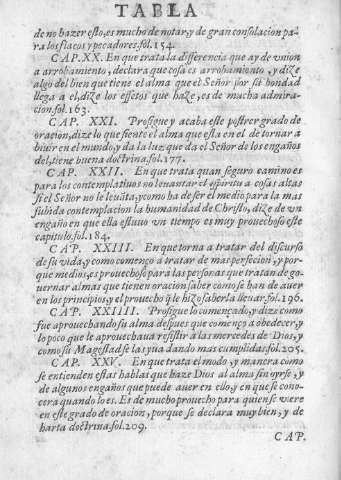 TABLA.
de no hazer esto, es mucho de notar, y de gran consolacion pa-
ra los flacos y pecadores. fol. 154.
CAP. XX. En que trata la differencia que ay de vnion
a arrobamiento, declara que cosa es arrobamiento, y dize
algo del bien que tiene el alma que el Señor por su bondad
llega a el, dize los effetos que haze, es de mucha admira-
cion. fol. 163.
CAP. XXI. Prosigue y acaba este postrer grado de
oracion, dize lo que siente el alma que esta en el de tornar a
biuir en el mundo, y da la luz que da el Señor de los engaños
del, tiene buena doctrina. fol. 177.
CAP. XXII. En que trata quan seguro camino es
para los contemplatiuos no leuantar el espiritu a cosas altas
si el Señor no le leuãta, y como ha de ser el medio para la mas
subida contemplacion la humanidad de Christo, dize de vn
engaño en que ella estuuo vn tiempo es muy prouechoso este
capitulo. fol. 184.
CAP. XXIII. En que torna a tratar del discurso
de su vida, y como començo a tratar de mas perfecion, y por-
que medios, es prouechoso para las personas que tratan de go-
uernar almas que tienen oracion saber como se han de auer
en los principios, y el prouecho q̃ le hizo saberla lleuar. fol. 196.
CAP. XXIIII. Prosigue lo començado, y dize como
fue aprouechando su alma despues que començo a obedecer, y
lo poco que le aprouechaua resistir a las mercedes de Dios, y
como su Magestad se las yua dando mas cumplidas. fol. 205.
CAP. XXV. En que trata el modo, y manera como
se entienden estas hablas que haze Dios al alma sin oyrse, y
de algunos engaños que puede auer en ello, y en que se cono-
cera quando lo es. Es de mucho prouecho para quien se viere
en este grado de oracion, porque se declara muy bien, y de
harta doctrina. fol. 209.
CAP.